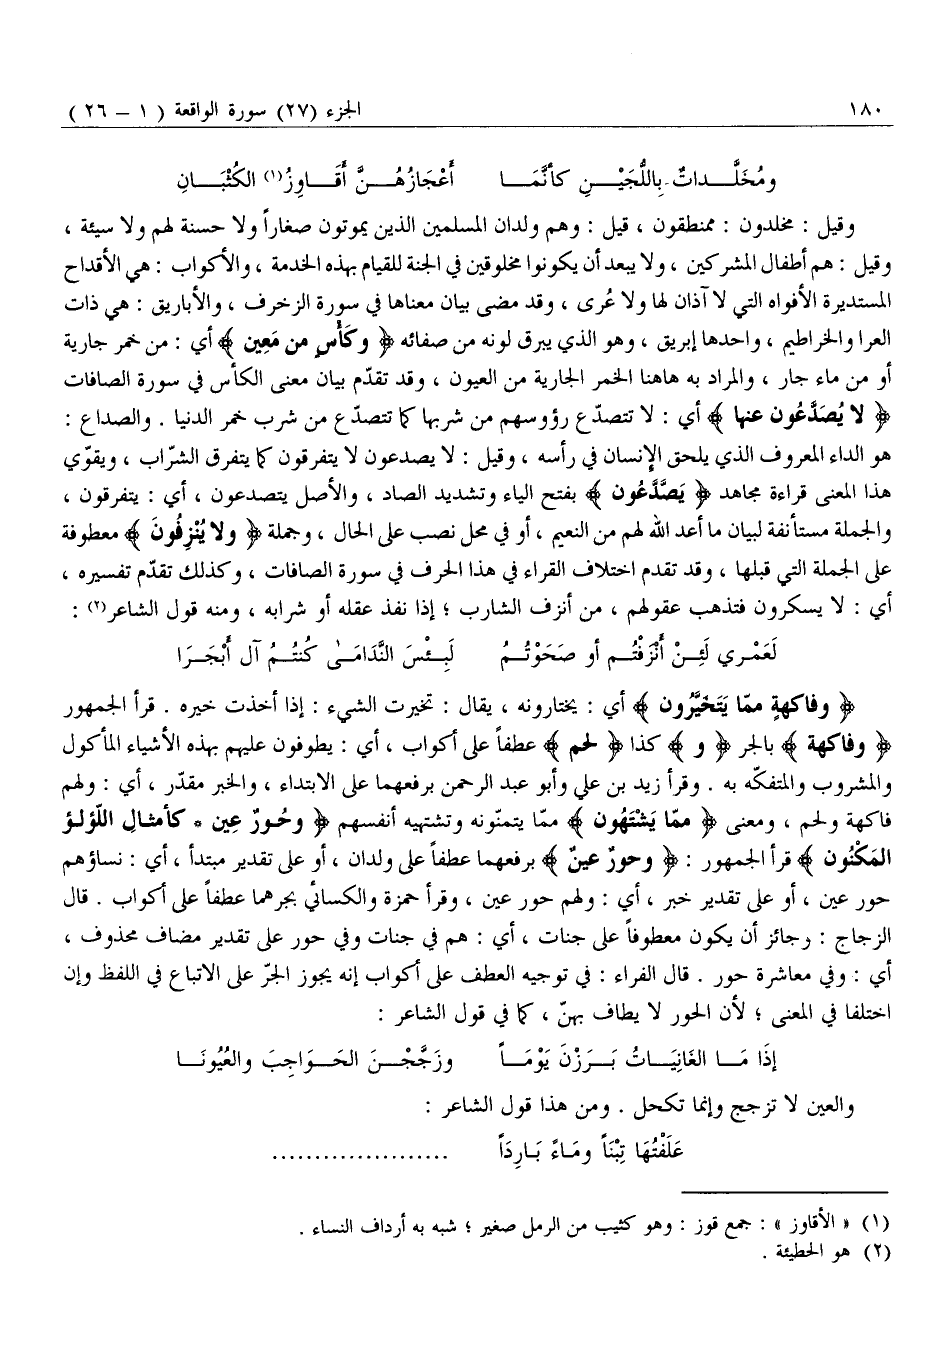 ١٨٠ الجزء (٢٧) سورة الواقعة ( ١ – ٢٦ )
ومُخَلَّـداتٌ بِاللُّجَيْـنِ كأنَّمَـا أَعْجَازُهُـنَّ أَقَـاوِزُ(١) الكُثْبَـانِ
وقيل : مخلدون : ممنطقون ، قيل : وهم ولدان المسلمين الذين يموتون صغاراً ولا حسنة لهم ولا سيئة ،
وقيل : هم أطفال المشركين ، ولا يبعد أن يكونوا مخلوقين في الجنة للقيام بهذه الخدمة ، والأكواب : هي الأقداح
المستديرة الأفواه التي لا آذان لها ولا عُرى ، وقد مضى بيان معناها في سورة الزخرف ، والأباريق : هي ذات
العرا والخراطيم ، واحدها إبريق ، وهو الذي يبرق لونه من صفائه ﴿ وكَأْسٍ من مَعِين ﴾ أي : من خمر جارية
أو من ماء جار ، والمراد به هاهنا الخمر الجارية من العيون ، وقد تقدّم بيان معنى الكأس في سورة الصافات
﴿ لا يُصَدَّعُون عنها ﴾ أي : لا تتصدّع رؤوسهم من شربها كما تتصدّع من شرب خمر الدنيا . والصداع :
هو الداء المعروف الذي يلحق الإنسان في رأسه ، وقيل : لا يصدعون لا يتفرقون كما يتفرق الشرّاب ، ويقوّي
هذا المعنى قراءة مجاهد ﴿ يَصَّدَّعُون ﴾ بفتح الياء وتشديد الصاد ، والأصل يتصدعون ، أي : يتفرقون ،
والجملة مستأنفة لبيان ما أعد الله لهم من النعيم ، أو في محل نصب على الحال ، وجملة ﴿ ولا يُنْزِفُونَ ﴾ معطوفة
على الجملة التي قبلها ، وقد تقدم اختلاف القراء في هذا الحرف في سورة الصافات ، وكذلك تقدّم تفسيره ،
أي : لا يسكرون فتذهب عقولهم ، من أنزف الشارب ؛ إذا نفذ عقله أو شرابه ، ومنه قول الشاعر(٢) :
لَعَمْري لَئِنْ أَنْزَفْتُـم أو صَحَوْتُـمُ لَبِـئْسَ النَّدَامَـىٰ كُنتُـمُ آل أَبْجَـرَا
﴿ وفاكهةٍ ممّا يَتَخَيَّرُون ﴾ أي : يختارونه ، يقال : تخيرت الشيء : إذا أخذت خيره . قرأ الجمهور
﴿ وفاكهة ﴾ بالجر ﴿ و ﴾ كذا ﴿ لحم ﴾ عطفاً على أكواب ، أي : يطوفون عليهم بهذه الأشياء المأكول
والمشروب والمتفكّه به . وقرأ زيد بن علي وأبو عبد الرحمن برفعهما على الابتداء ، والخبر مقدّر ، أي : ولهم
فاكهة ولحم ، ومعنى ﴿ ممّا يَشْتَهُون ﴾ ممّا يتمنّونه وتشتهيه أنفسهم ﴿ وحُـورٌ عِين * كأمثـالِ اللّؤلـؤ
المَكْنُون ﴾ قرأ الجمهور : ﴿ وحورٌ عينٌ ﴾ برفعهما عطفاً على ولدان ، أو على تقدير مبتدأ ، أي : نساؤهم
حور عين ، أو على تقدير خبر ، أي : ولهم حور عين ، وقرأ حمزة والكسائي بجرهما عطفاً على أكواب . قال
الزجاج : رجائز أن يكون معطوفاً على جنات ، أي : هم في جنات وفي حور على تقدير مضاف محذوف ،
أي : وفي معاشرة حور . قال الفراء : في توجيه العطف على أكواب إنه يجوز الجرّ على الاتباع في اللفظ وإن
اختلفا في المعنى ؛ لأن الحور لا يطاف بهنّ ، كما في قول الشاعر :
إذَا مَـا الغَانِيَـاتُ بَـرَزْنَ يَوْمَـاً وزَجَّجْـنَ الحَـوَاجِبَ والعُيُونَـا
والعين لا تزجج وإنما تكحل . ومن هذا قول الشاعر :
عَلَفْتُهَا تِبْنَاً ومَـاءً بَـارِدَاً .....................
(١) « الأقاوز » : جمع قوز : وهو كثيب من الرمل صغير ؛ شبه به أرداف النساء .
(٢) هو الحطيئة .